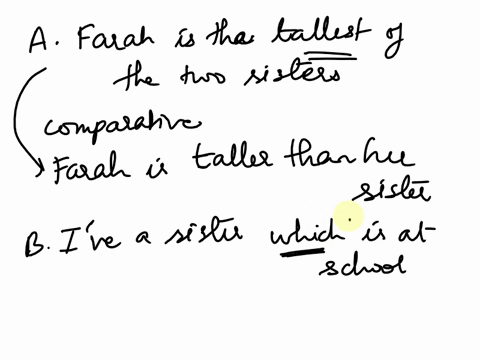 A. Farah is the tallest of
the two sisters
comparative
Farah is taller than her
sister
B. I've a sister which is at
school